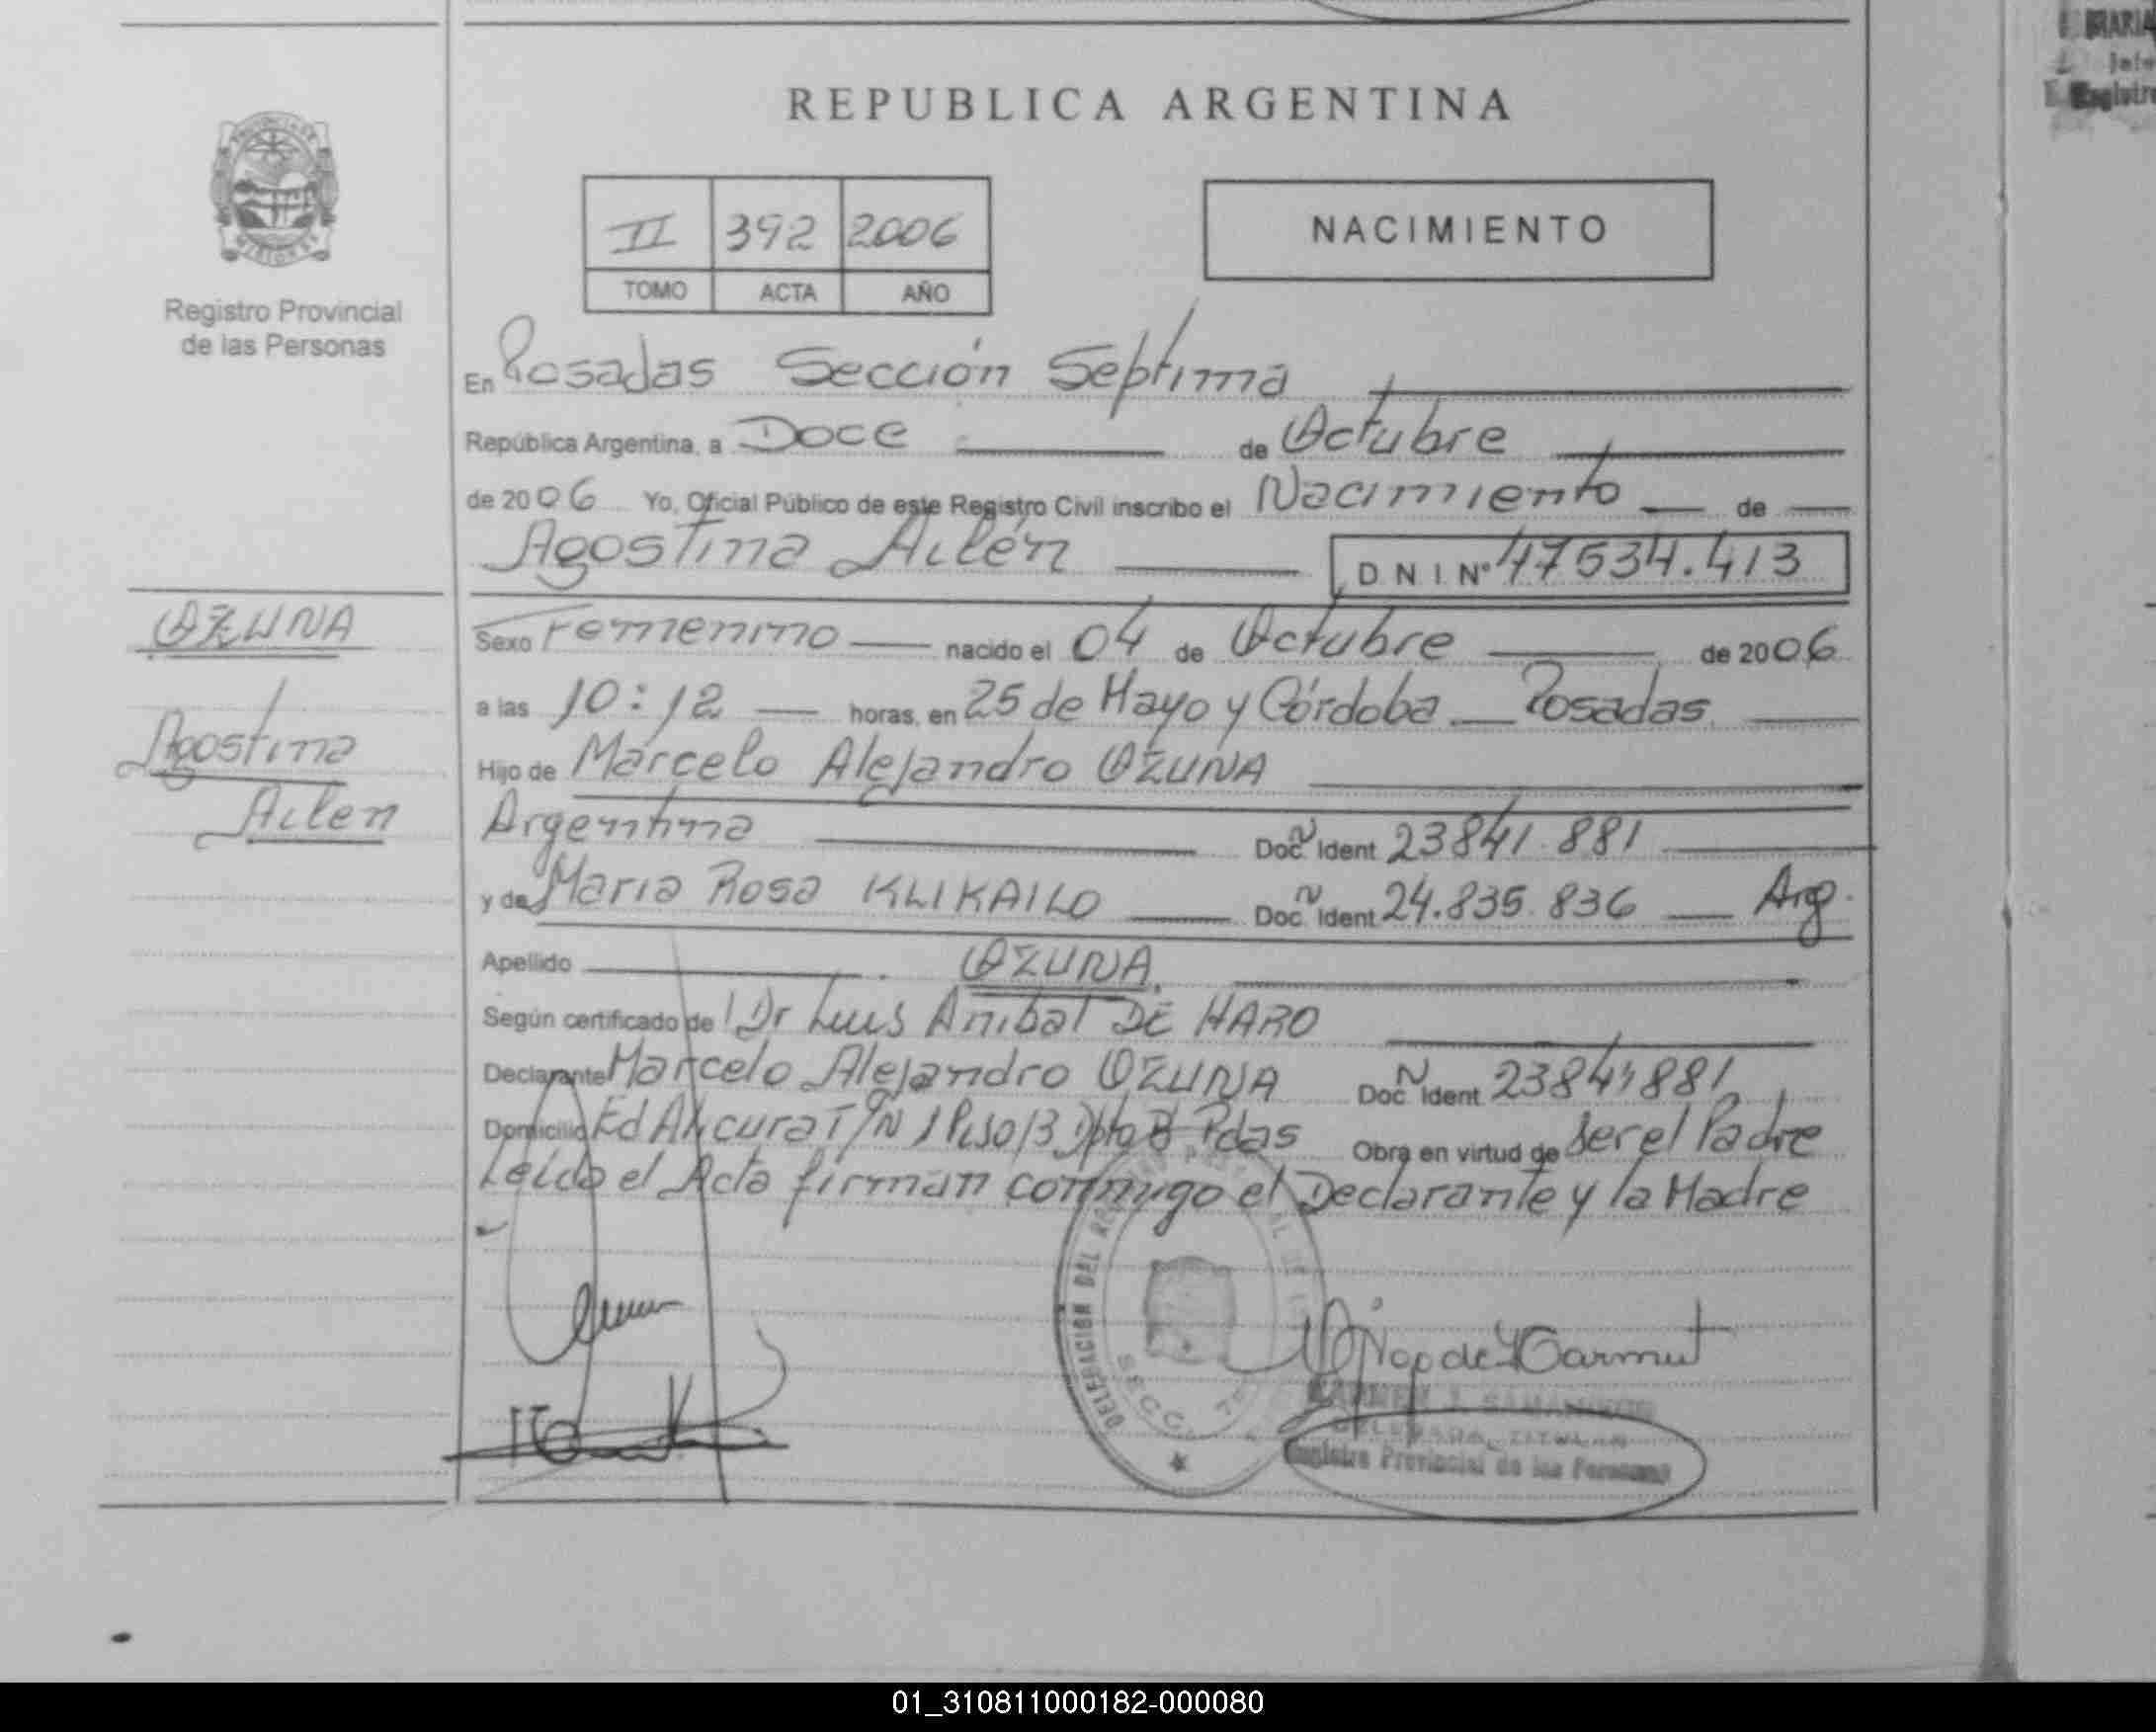 REPUBLICA ARGENTINA
II 392 2006
TOMO ACTA AÑO
NACIMIENTO
Registro Provincial
de las Personas
En Posadas Sección Septima
República Argentina, a Doce de Octubre
de 2006 Yo, Oficial Público de este Registro Civil inscribo el Nacimiento de
Agostina Ailén D N I Nº 47534.413
OZUNA
Agostina
Ailen
Sexo Femenino nacido el 04 de Octubre de 2006
a las 10:12 horas, en 25 de Mayo y Córdoba Posadas
Hijo de Marcelo Alejandro OZUNA
Argentina Doc. Ident 23841.881
y de Maria Rosa KLIKAILO Doc. Ident 24.835.836 Arg.
Apellido OZUNA
Según certificado de Dr Luis Anibal DE HARO
Declarante Marcelo Alejandro OZUNA Doc. Ident 23841881
Domicilio Ed Piso Dpto B Pdas Obra en virtud de ser el Padre
Leido el Acta firman conmigo el Declarante y la Madre
DELEGACION DEL
SECC. 7
Registro Provincial de las Personas
MARIA
01_310811000182-000080